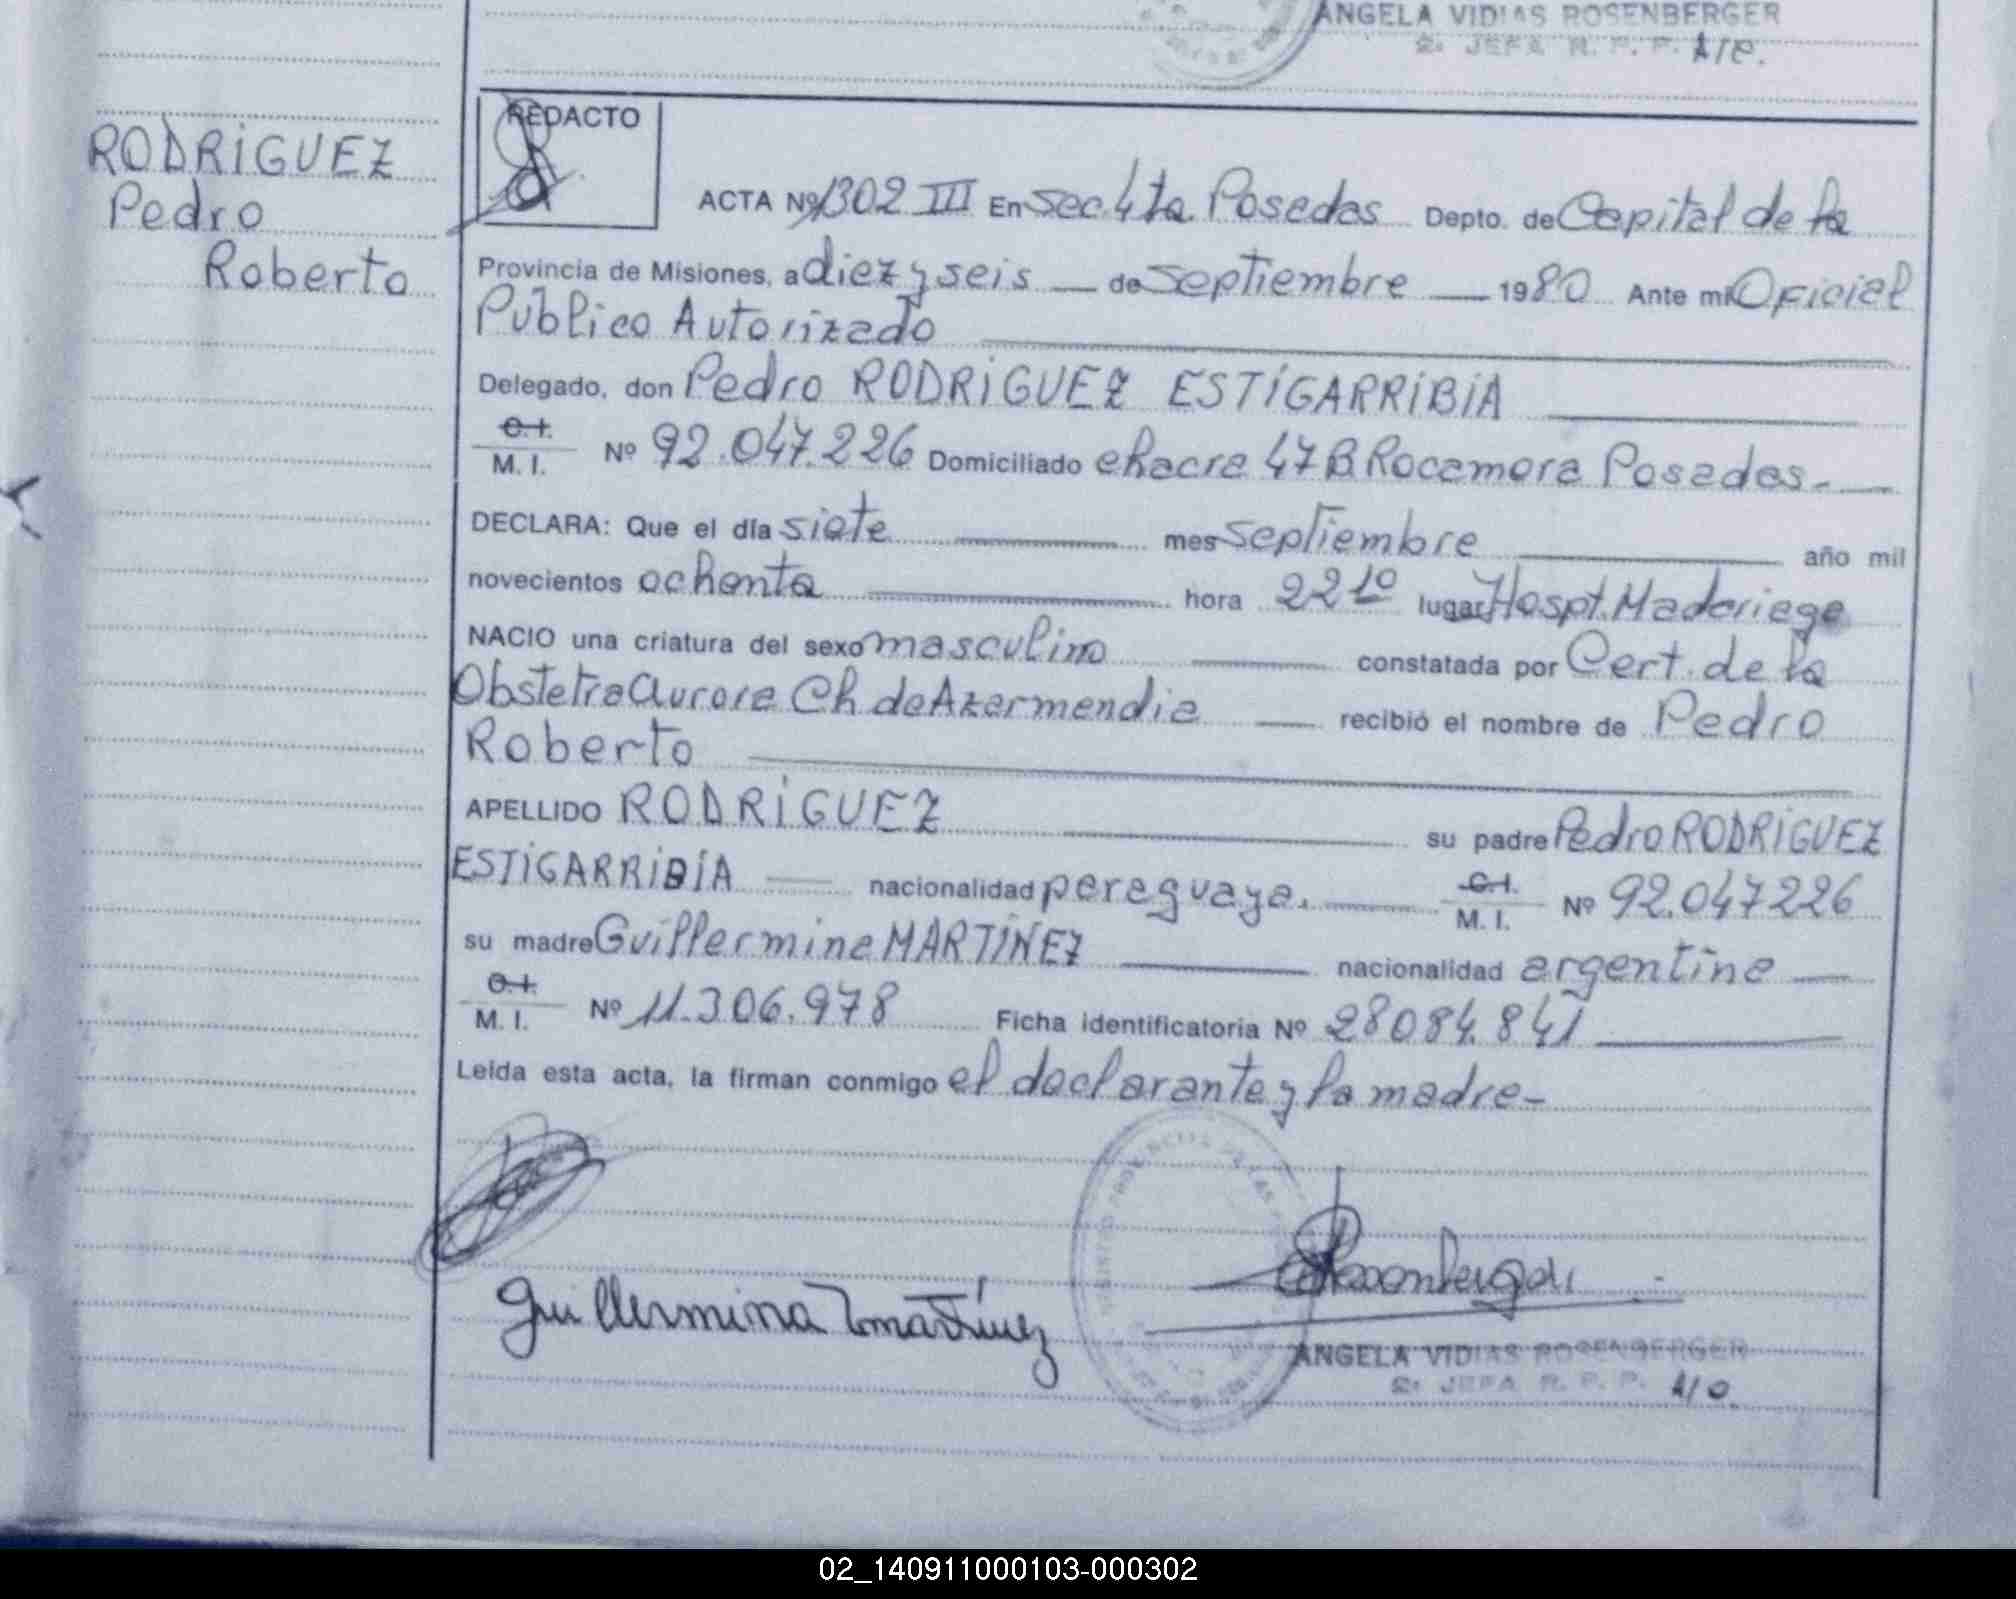 ANGELA VIDIAS ROSENBERGER
2: JEFA R. P. P. A/C.
RODRIGUEZ
Pedro
Roberto
REDACTO
ACTA Nº 1302 III En Sec 4ta Posadas Depto. de Capital de la
Provincia de Misiones, a diez y seis — de Septiembre — 1980 Ante mi Oficial
Público Autorizado
Delegado, don Pedro RODRIGUEZ ESTIGARRIBIA
C. I.
M. I. Nº 92.047.226 Domiciliado chacra 47 B Rocamora Posadas.-
DECLARA: Que el día siete mes Septiembre año mil
novecientos ochenta hora 22 10 lugar Hospt. Madariaga
NACIO una criatura del sexo masculino constatada por Cert. de la
Obstetra Aurora Ch de Azarmendia recibió el nombre de Pedro
Roberto
APELLIDO RODRIGUEZ su padre Pedro RODRIGUEZ
ESTIGARRIBIA nacionalidad paraguaya. C. I. M. I. Nº 92.047226
su madre Guillermina MARTINEZ nacionalidad argentina
C. I.
M. I. Nº 11.306.978 Ficha identificatoria Nº 28084.841
Leída esta acta, la firman conmigo el declarante y la madre-
Guillermina Martínez
ANGELA VIDIAS ROSENBERGER
2: JEFA R. P. P. A/C.
02_140911000103-000302